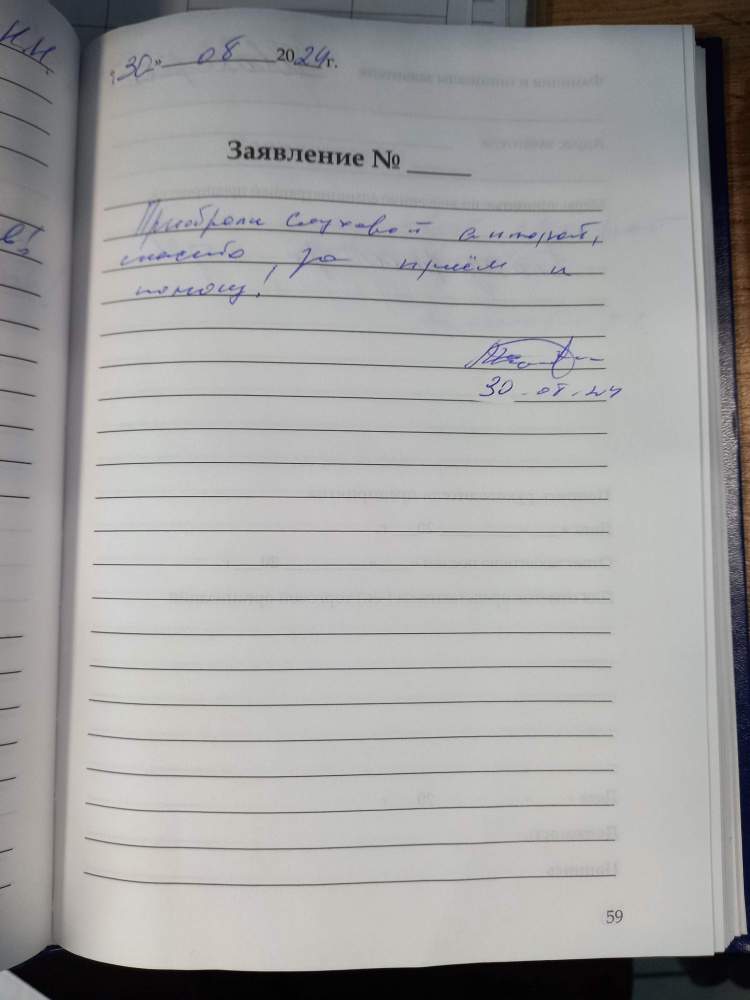 н.н.
е!
«30» 08 2024 г.
Заявление № ____
Приобрели слуховой аппарат,
спасибо за приём и
помощ!
30.08.24
59